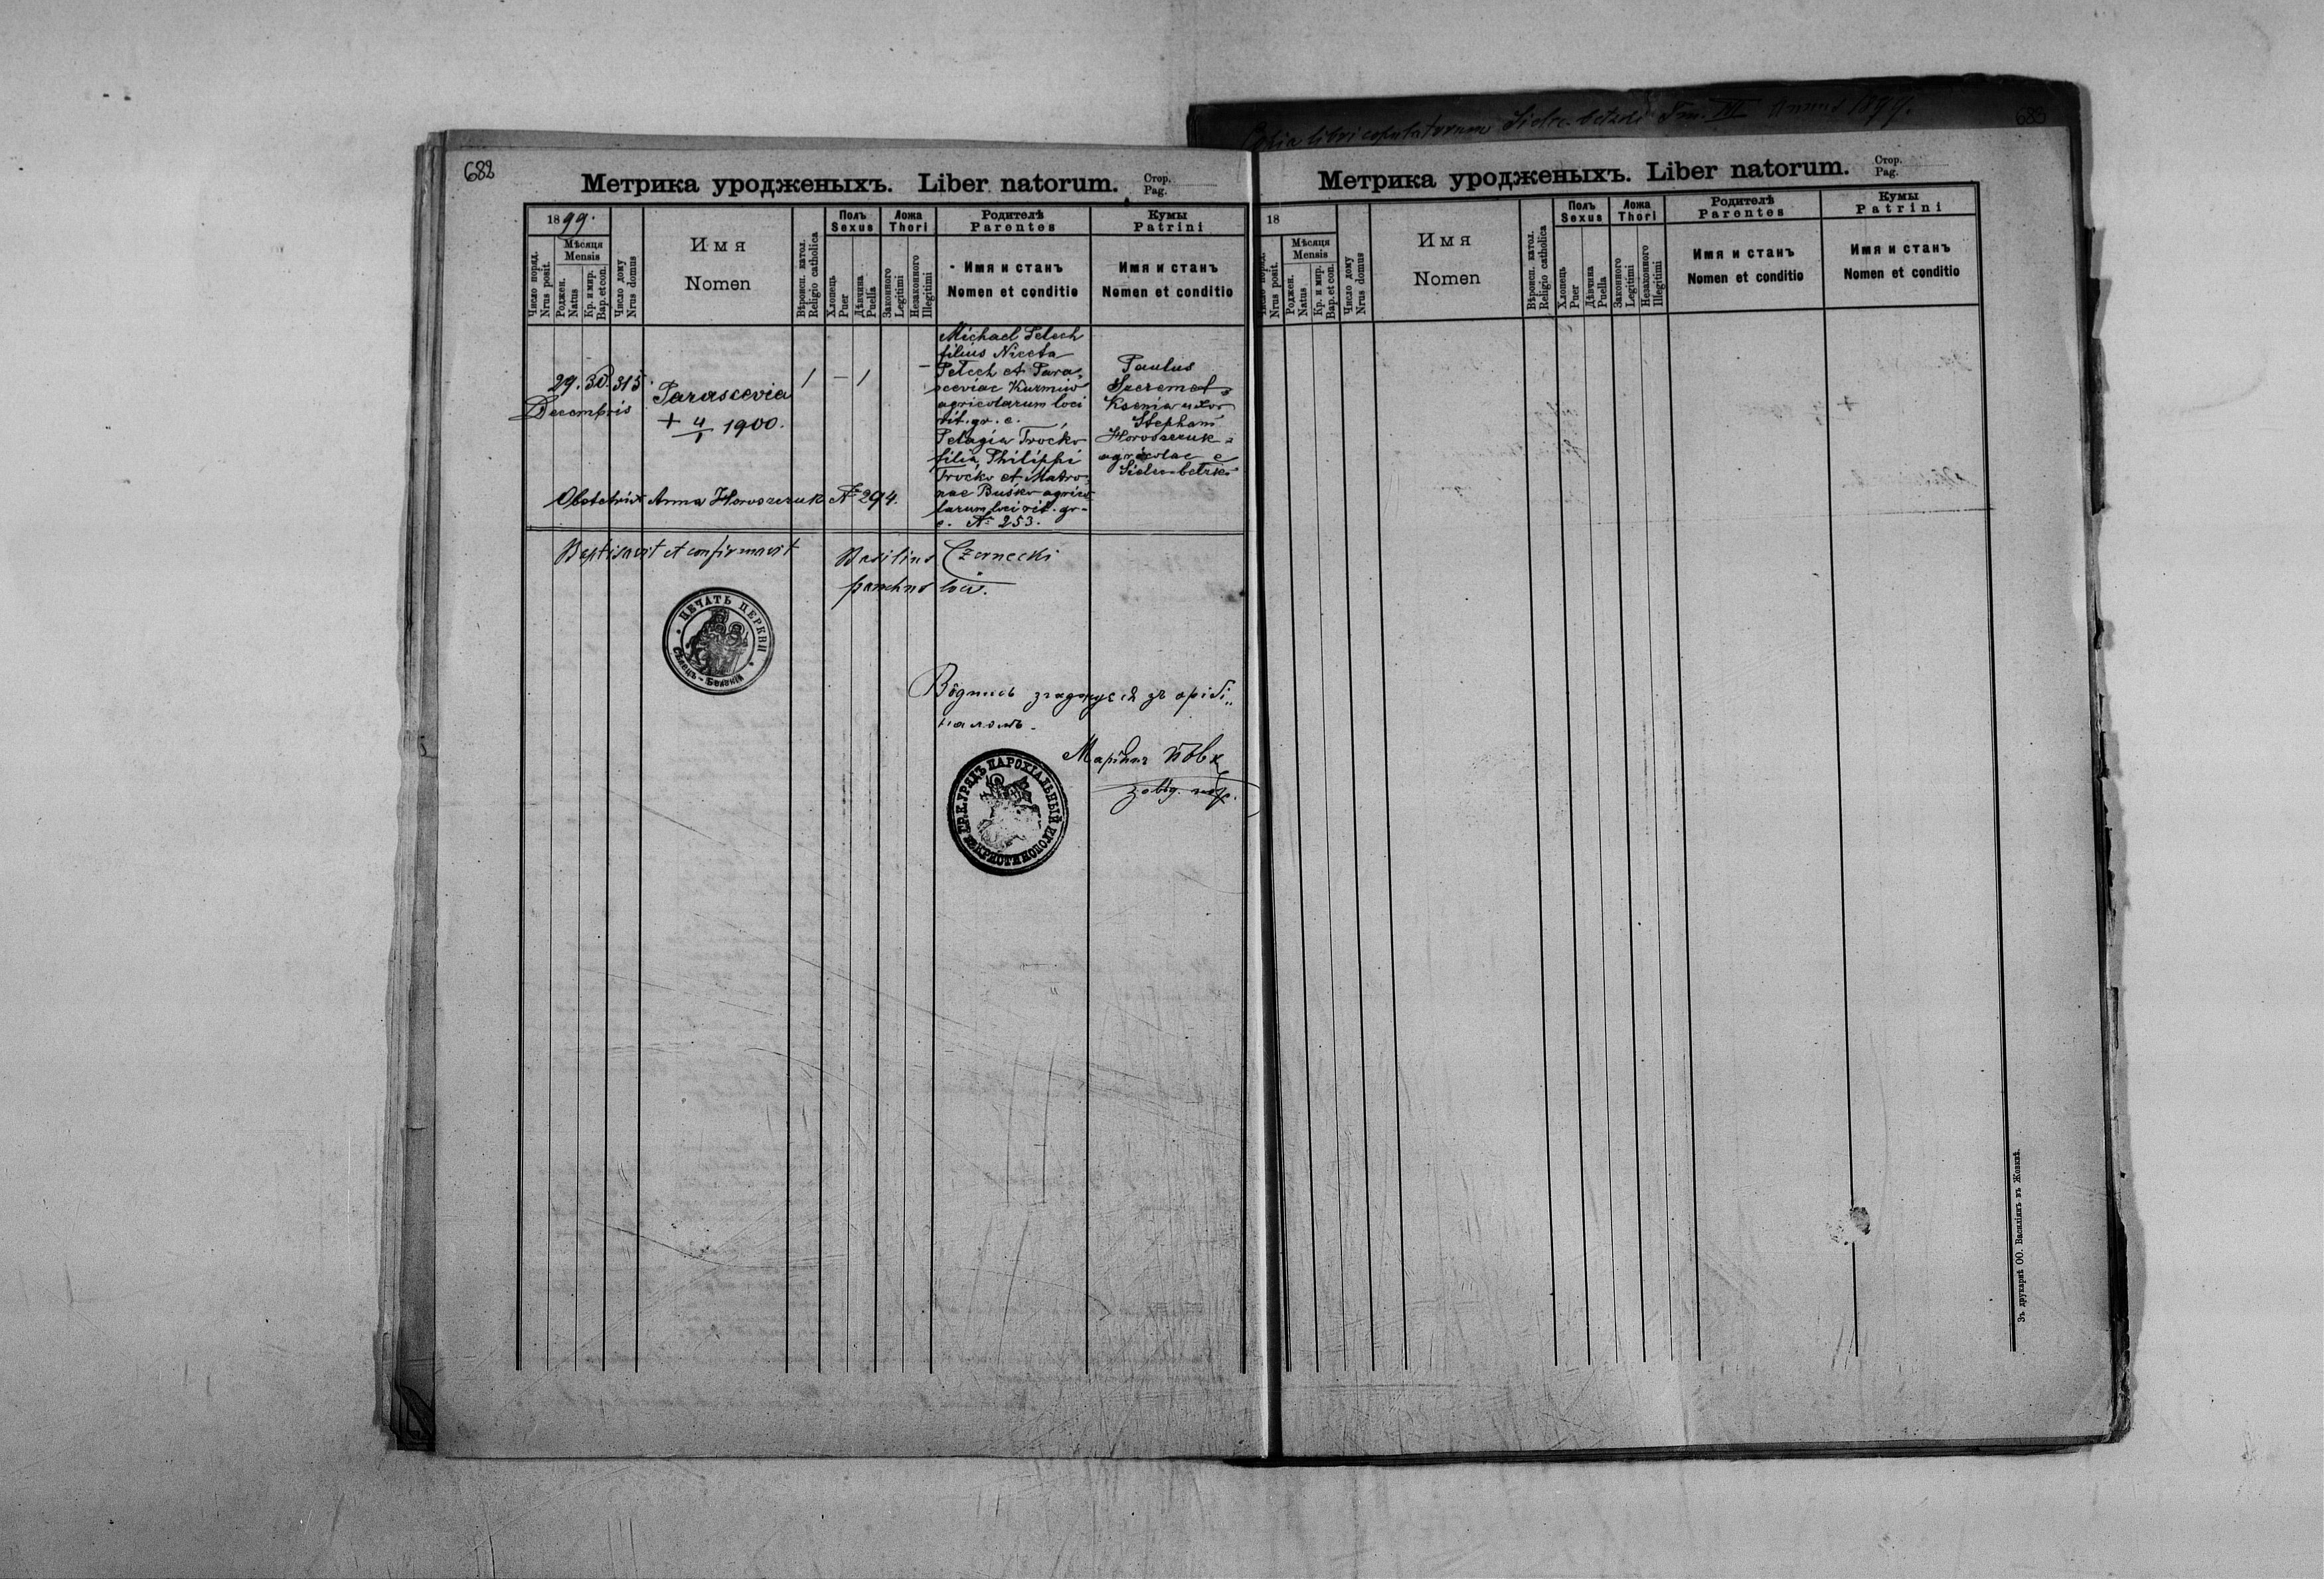 682
Метрика уродженыхъ. Liber natorum.
Стор.
Pag.
1899.
Число поряд.
Nrus posit.
Мѣсяця
Mensis
Роджен.
Natus
Кр. и мир.
Bap. et con.
Число дому
Nrus domus
Имя
Nomen
Вѣроисп. катол.
Religio catholica
Полъ
Sexus
Хлопець
Puer
Дѣвчина
Puella
Ложа
Thori
Законного
Legitimi
Незаконного
Illegitimi
Родителѣ
Parentes
Имя и станъ
Nomen et conditio
Кумы
Patrini
Имя и станъ
Nomen et conditio
29. 30. 315.
Decembris
Parascevia
+ 4/1 1900.
1 – 1
Michael Pelech
filius Niceta
Pelech et Para-
sceviae Kuzmiw
agricolarum loci
rit. gr. c.
Pelagia Troćko
filia Philippi
Troćko et Matro-
nae Buśko agrico-
larum loci rit. gr.
c. № 253.
Paulus
Szeremet
Ksenia uxor
Stephani
Horoszczuk
agricolae e
Sielec-bełzki
Obstetrix Anna Horoszczuk № 294.
Baptisavit et confirmavit Basilius Czernecki
parochus loci.
ПЕЧАТЬ ЦЕРКВИ
Сѣлець-Белзкій
Вôдпись згаджуєся зъ оріґі„
наломъ.
Маріянъ
завѣд. пар.
ГР. К. УРЯДЪ ПАРОХІАЛЬНЫЙ
въ КРИСТИНОПОЛИ
Copia libri copulatorum Sielec-bełzki Tm. III Annus 1899.
683
Метрика уродженыхъ. Liber natorum.
Стор.
Pag.
18
Число поряд.
Nrus posit.
Мѣсяця
Mensis
Роджен.
Natus
Кр. и мир.
Bap. et con.
Число дому
Nrus domus
Имя
Nomen
Вѣроисп. катол.
Religio catholica
Полъ
Sexus
Хлопець
Puer
Дѣвчина
Puella
Ложа
Thori
Законного
Legitimi
Незаконного
Illegitimi
Родителѣ
Parentes
Имя и станъ
Nomen et conditio
Кумы
Patrini
Имя и станъ
Nomen et conditio
Зъ друкарнѣ ОО. Василіянъ въ Жовквѣ.